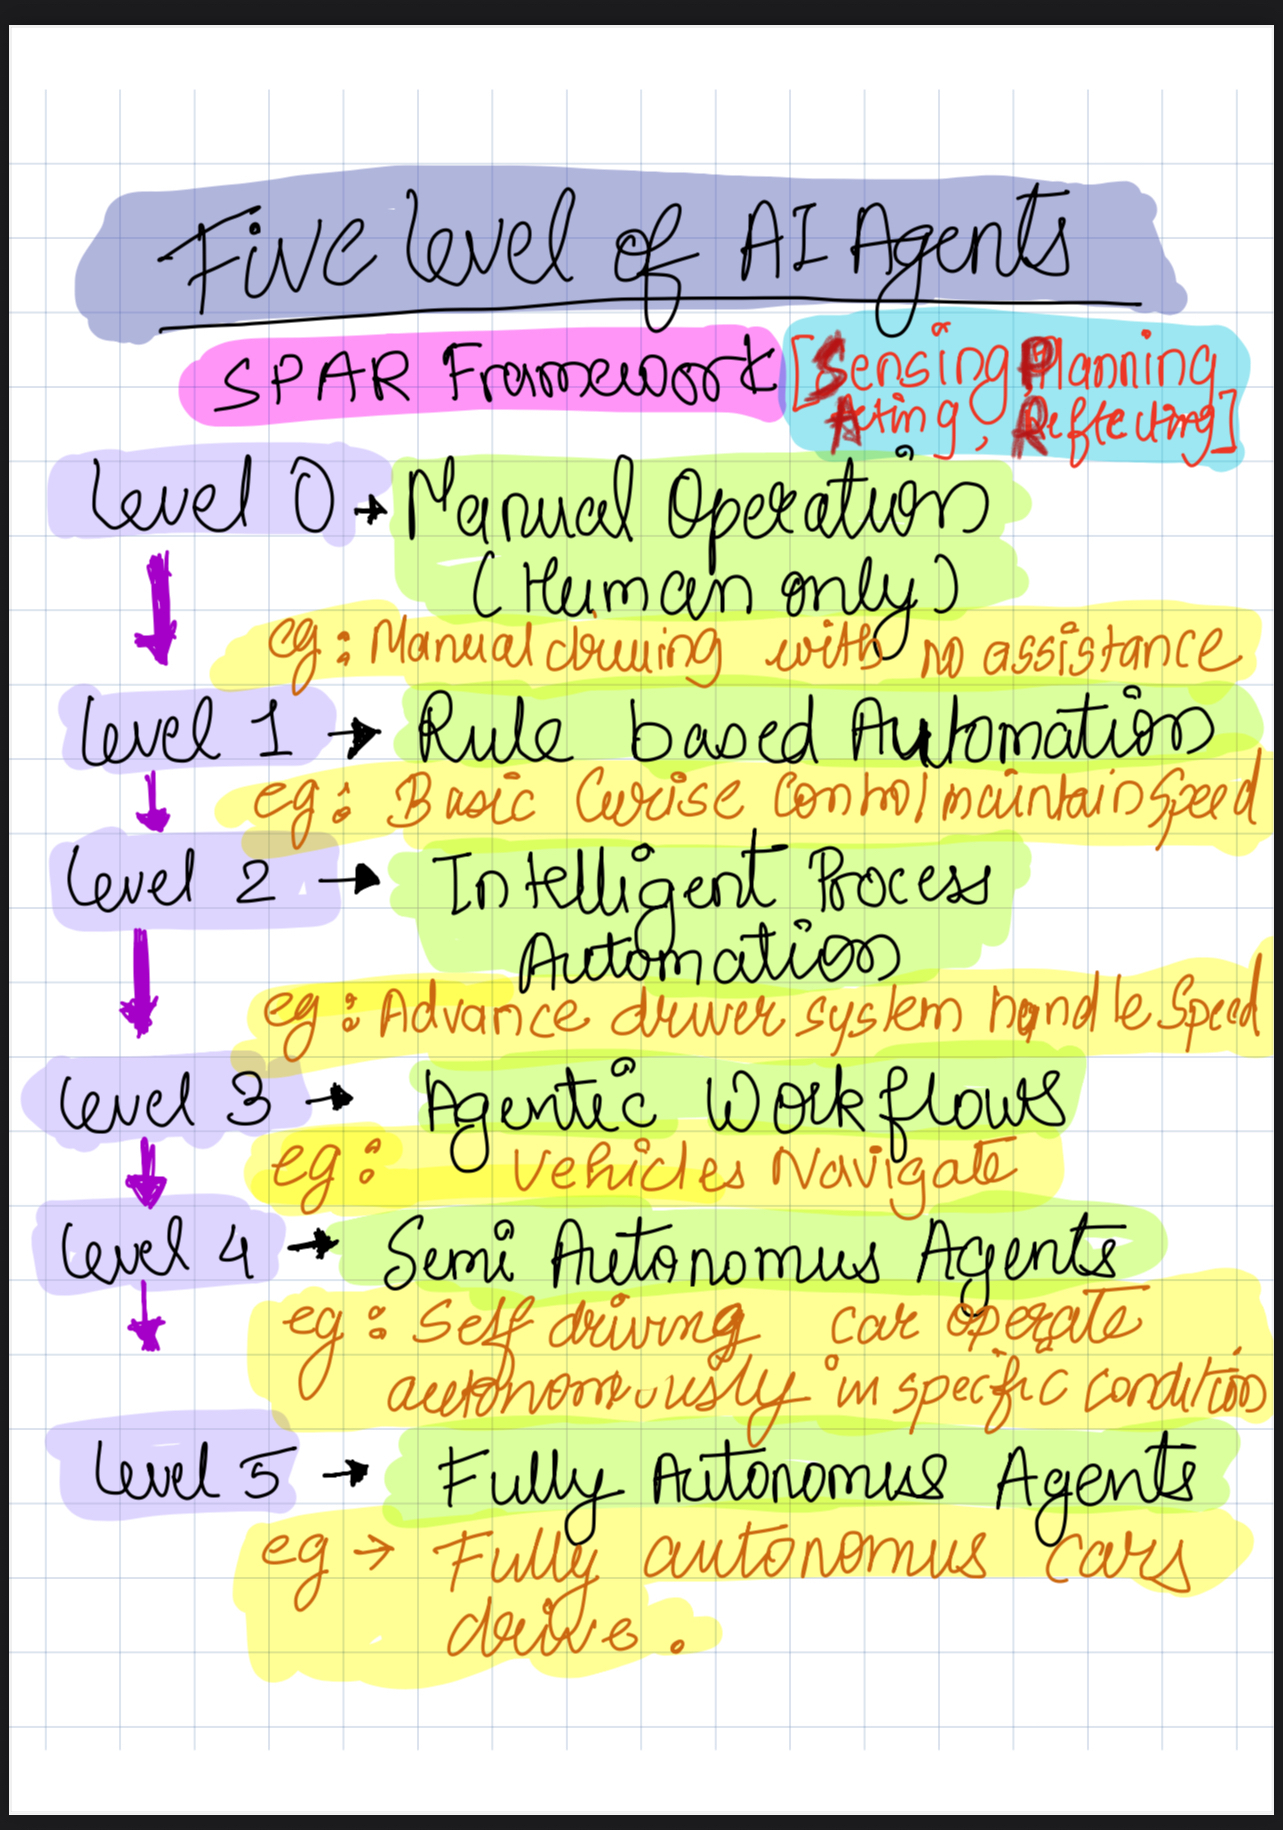 Five level of AI Agents
SPAR Framework [Sensing Planning
Acting, Reflecting]
Level 0 → Manual Operation
(Human only)
eg: Manual driving with no assistance
Level 1 → Rule based Automation
eg: Basic Curise Control maintain Speed
Level 2 → Intelligent Process
Automation
eg: Advance driver system handle Speed
Level 3 → Agentic Workflows
eg: Vehicles Navigate
Level 4 → Semi Autonomus Agents
eg: Self driving car operate
autonomously in specific conditions
Level 5 → Fully Autonomus Agents
eg → Fully autonomus cars
drive.